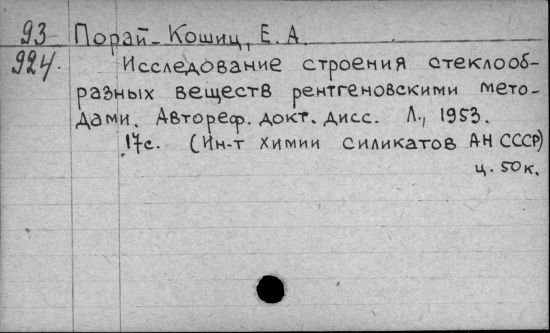 93 Порай-Кошиц, Е. А.
924. Исследование строения стеклооб-
разных веществ рентгеновскими мето-
дами. Автореф. докт. дисс. Л., 1953.
17с. (Ин-т химии силикатов АН СССР)
ц. 50к.